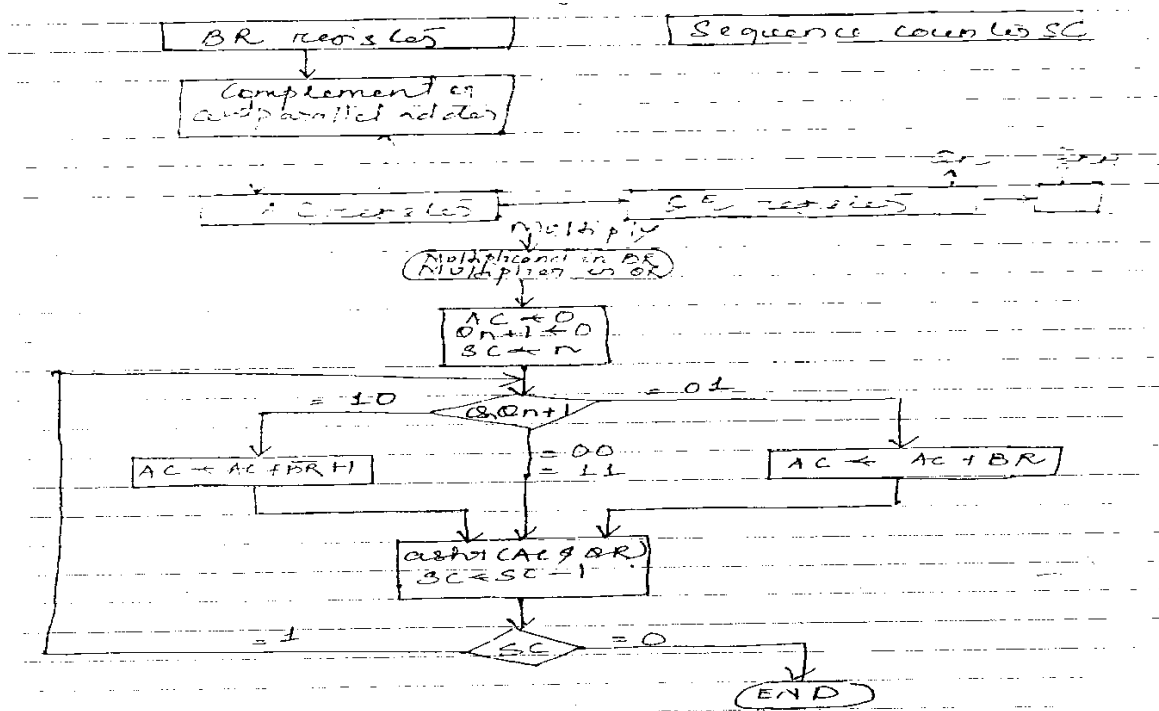 BR register
Sequence counter SC
Complement en
and parallel adder
AC register
QR register
Multiply
Multiplicand in BR
Multiplier in QR
AC ← 0
Qn+1 ← 0
SC ← n
= 10
QnQn+1
= 01
= 00
= 11
AC ← AC + BR + 1
AC ← AC + BR
ashr (AC & QR)
SC ← SC - 1
= 1
SC
= 0
END